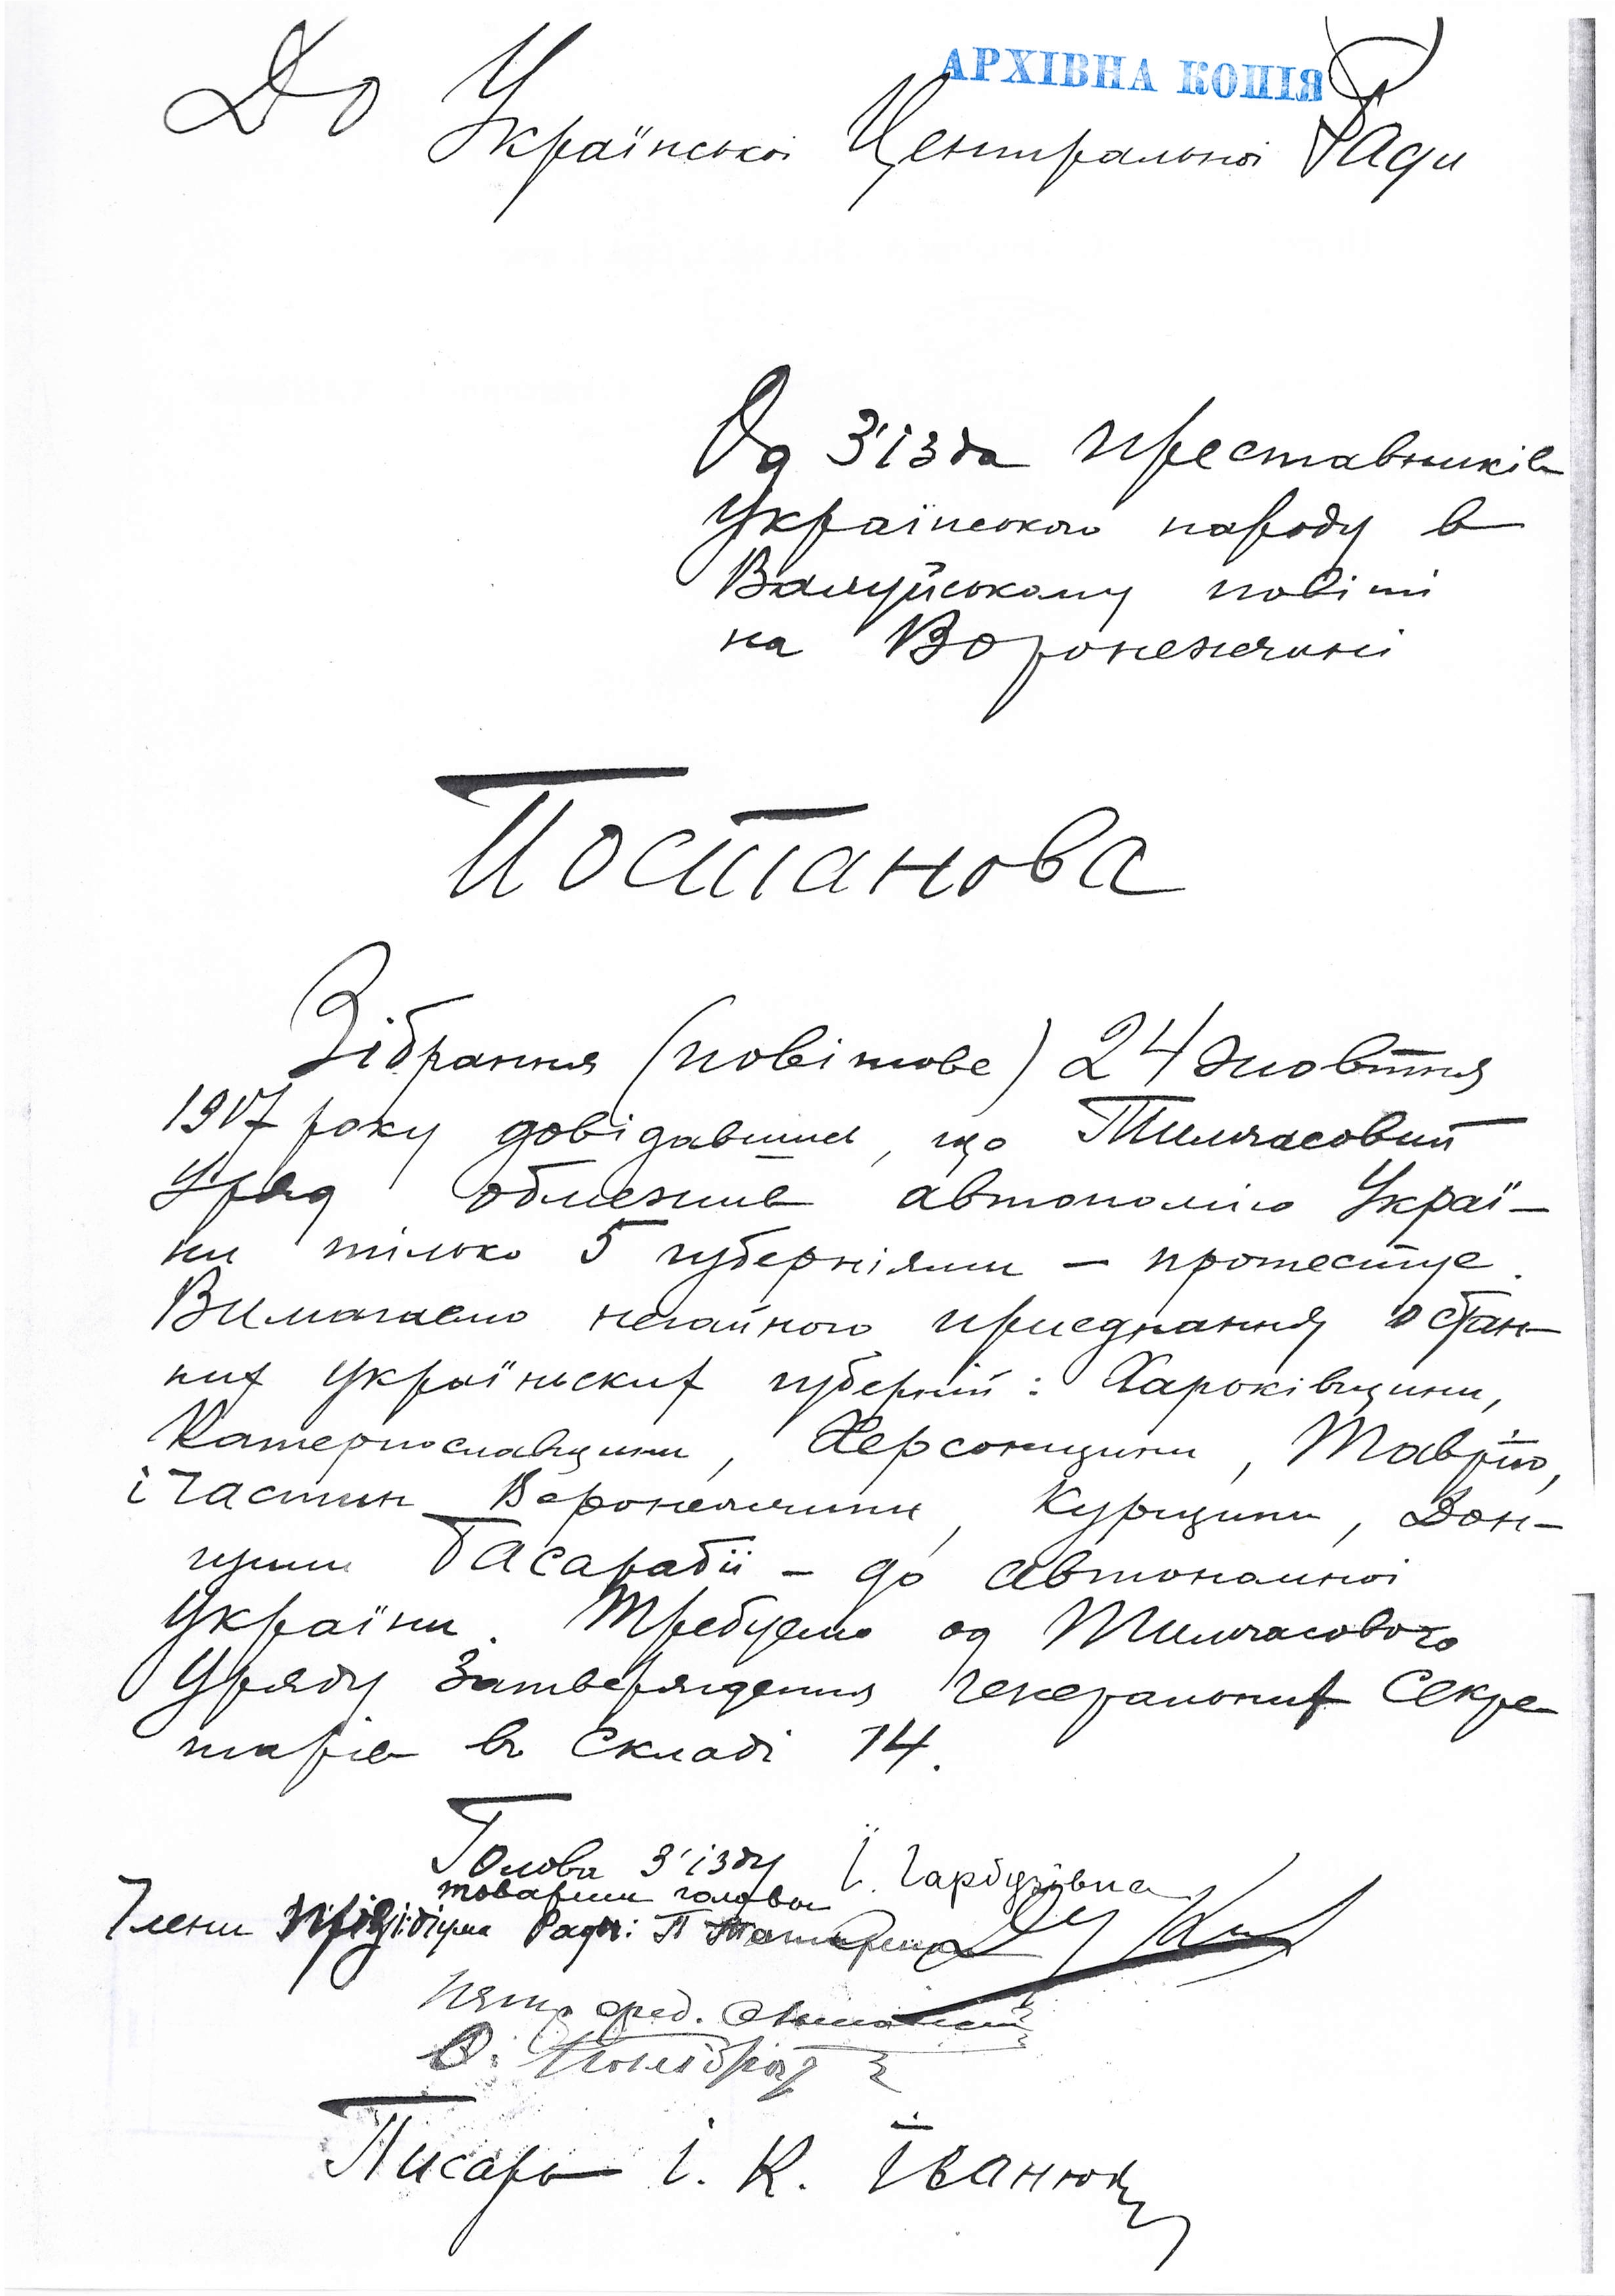 АРХІВНА КОПІЯ
До Української Центральної Ради
Од З'ізда преставників
Українського народу в
Валуйському повіті
на Воронежчині
Постанова
Зібрання (повітове) 24 жовтня
1917 року довідавшись, що Тимчасовий
Уряд обмежив автономію Украї-
ни тілько 5 губерніями – протестує.
Вимагаємо негайного приєднання остан-
них українських губерній: Харьківщини,
Катеринославщини, Херсонщини, Таврію,
і частин Воронежчини, Курщини, Дон-
щини Басарабії – до автономної
України. Требуємо од Тимчасового
Уряду затвердження генеральних Секре
тарів в складі 14.
Голова З'ізду І.
товариш голови
Члени Прізідіума Ради: П
О.
Писарь І. К. Іванюк